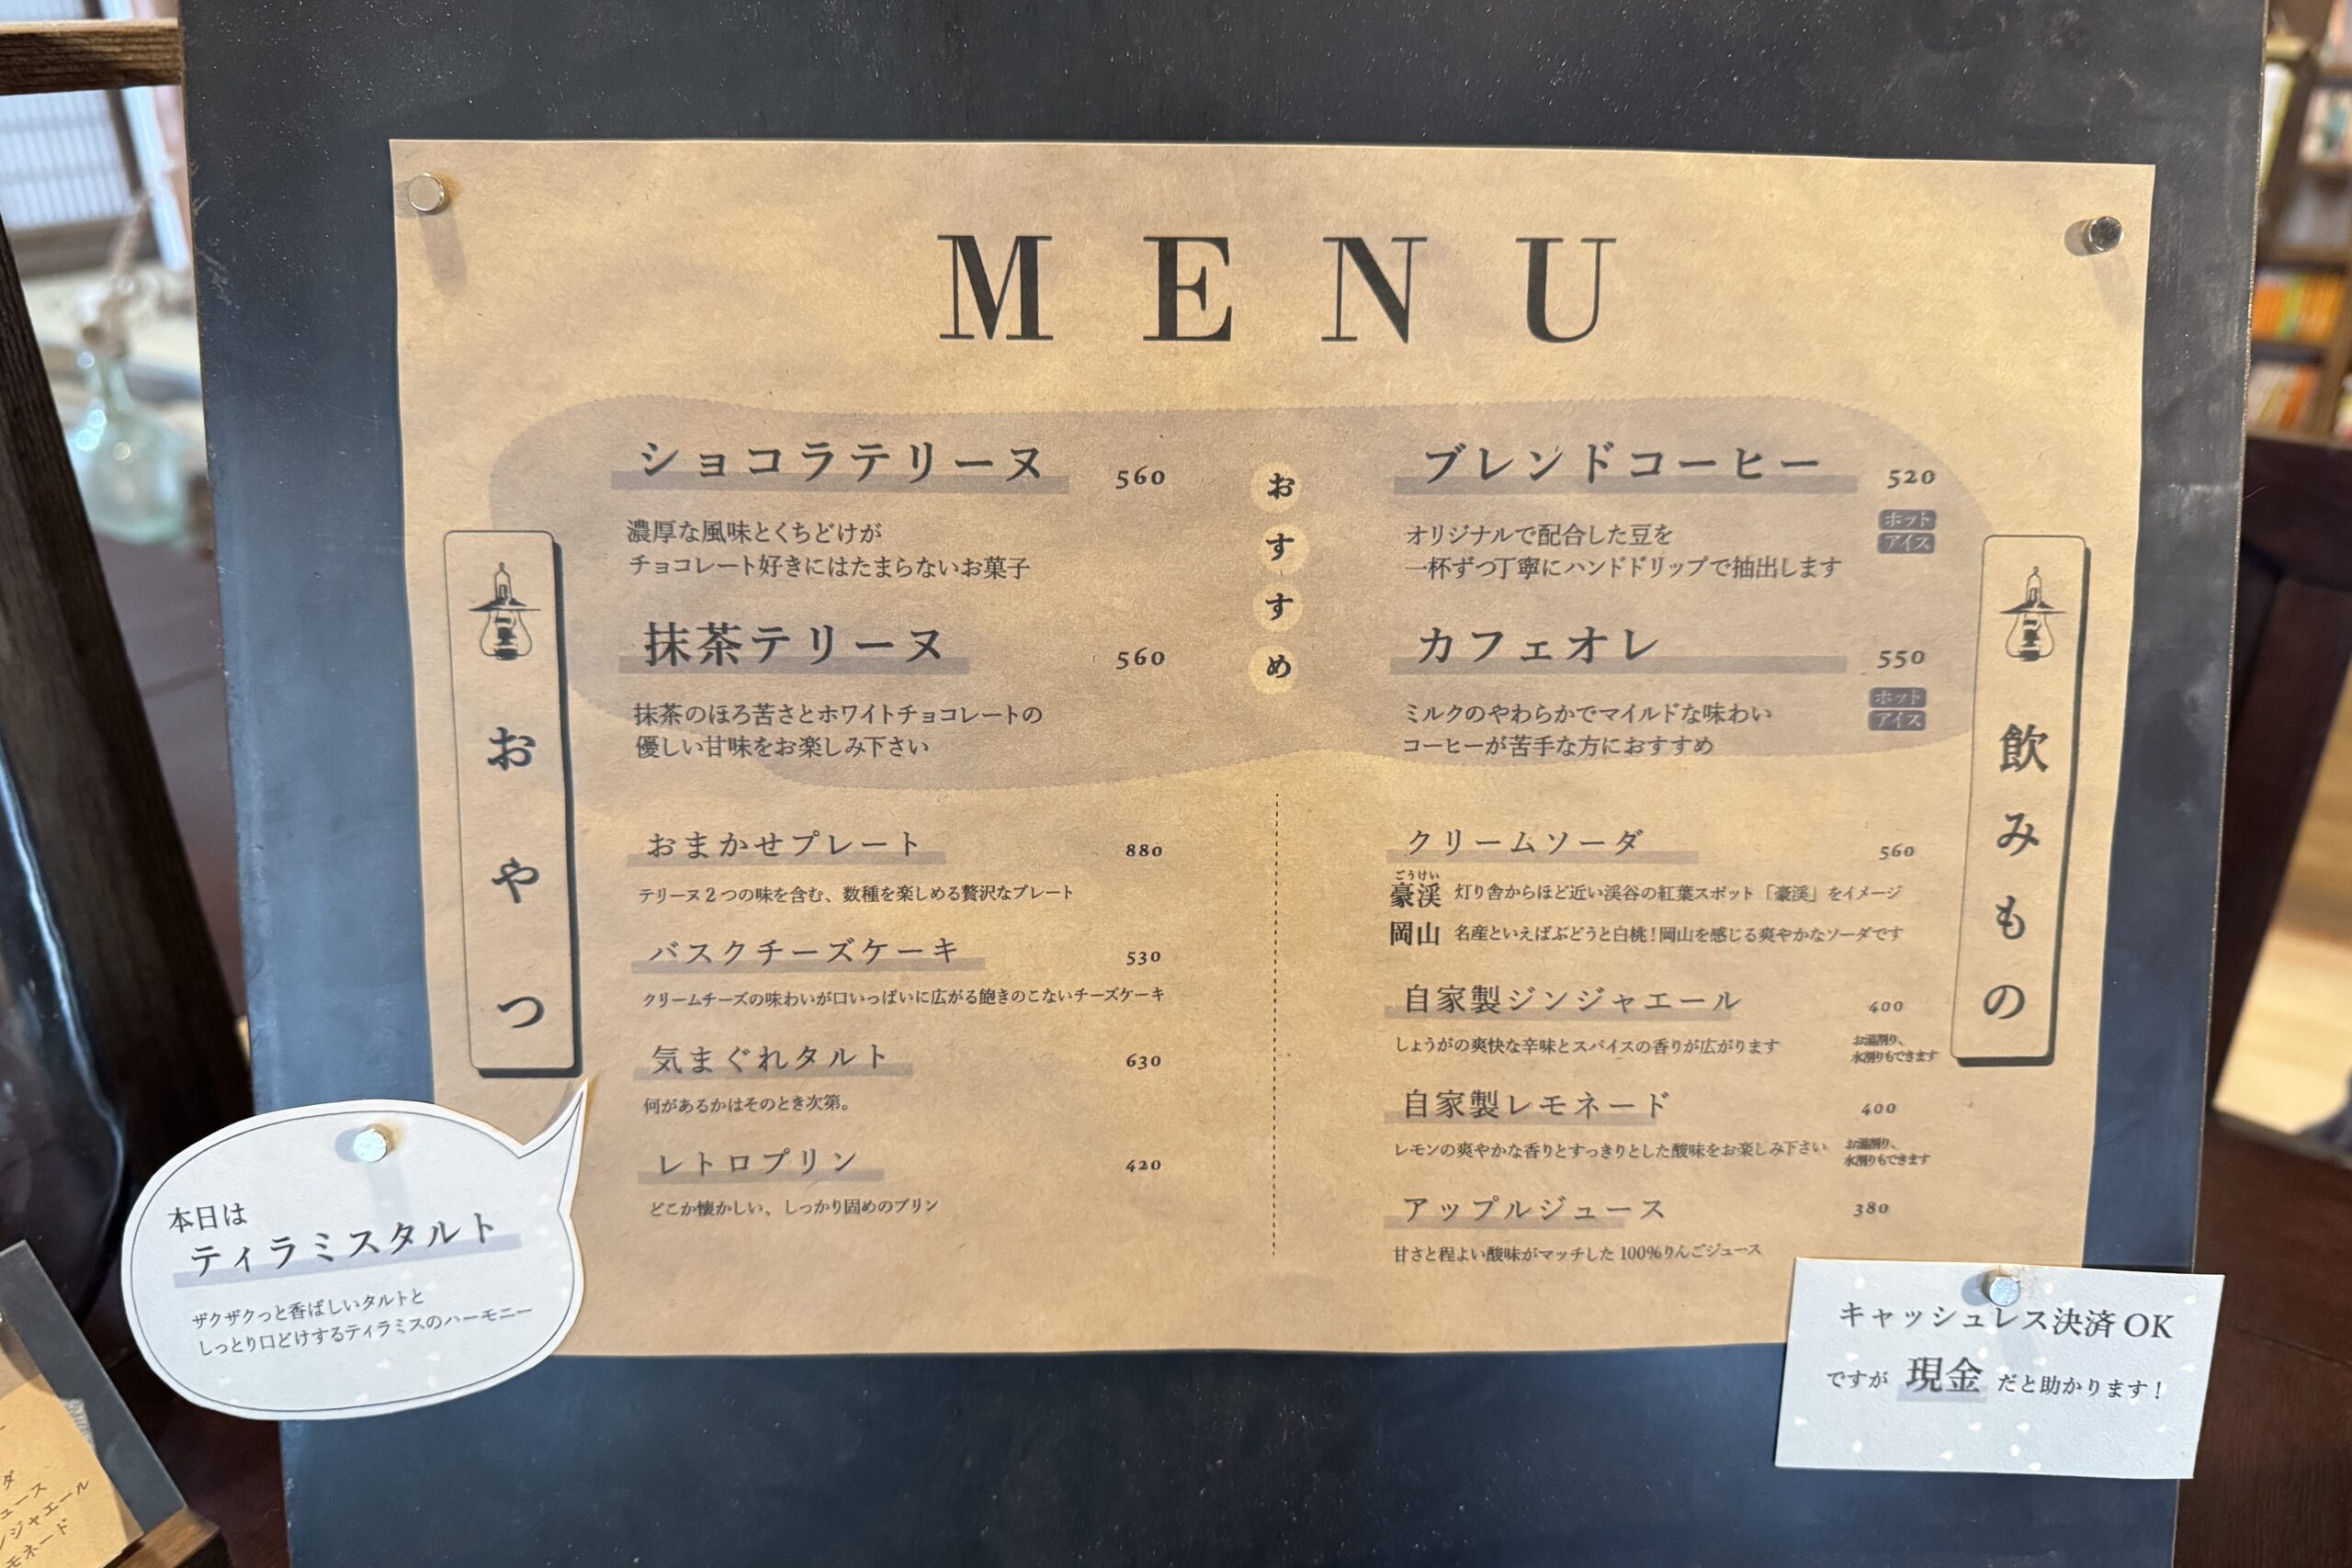 MENU
おすすめ
おやつ
ショコラテリーヌ 560
濃厚な風味とくちどけが
チョコレート好きにはたまらないお菓子
抹茶テリーヌ 560
抹茶のほろ苦さとホワイトチョコレートの
優しい甘味をお楽しみ下さい
おまかせプレート 880
テリーヌ2つの味を含む、数種を楽しめる贅沢なプレート
バスクチーズケーキ 530
クリームチーズの味わいが口いっぱいに広がる飽きのこないチーズケーキ
気まぐれタルト 630
何があるかはそのとき次第。
レトロプリン 420
どこか懐かしい、しっかり固めのプリン
本日は
ティラミスタルト
ザクザクっと香ばしいタルトと
しっとり口どけするティラミスのハーモニー
飲みもの
ブレンドコーヒー 520
ホット
アイス
オリジナルで配合した豆を
一杯ずつ丁寧にハンドドリップで抽出します
カフェオレ 550
ホット
アイス
ミルクのやわらかでマイルドな味わい
コーヒーが苦手な方におすすめ
クリームソーダ 560
ごうけい
豪渓 灯り舎からほど近い渓谷の紅葉スポット「豪渓」をイメージ
岡山 名産といえばぶどうと白桃！岡山を感じる爽やかなソーダです
自家製ジンジャエール 400
しょうがの爽快な辛味とスパイスの香りが広がります
お湯割り、
水割りもできます
自家製レモネード 400
レモンの爽やかな香りとすっきりとした酸味をお楽しみ下さい
お湯割り、
水割りもできます
アップルジュース 380
甘さと程よい酸味がマッチした100％りんごジュース
キャッシュレス決済OK
ですが 現金 だと助かります！
ダ
ュース
ンジャエール
モネード